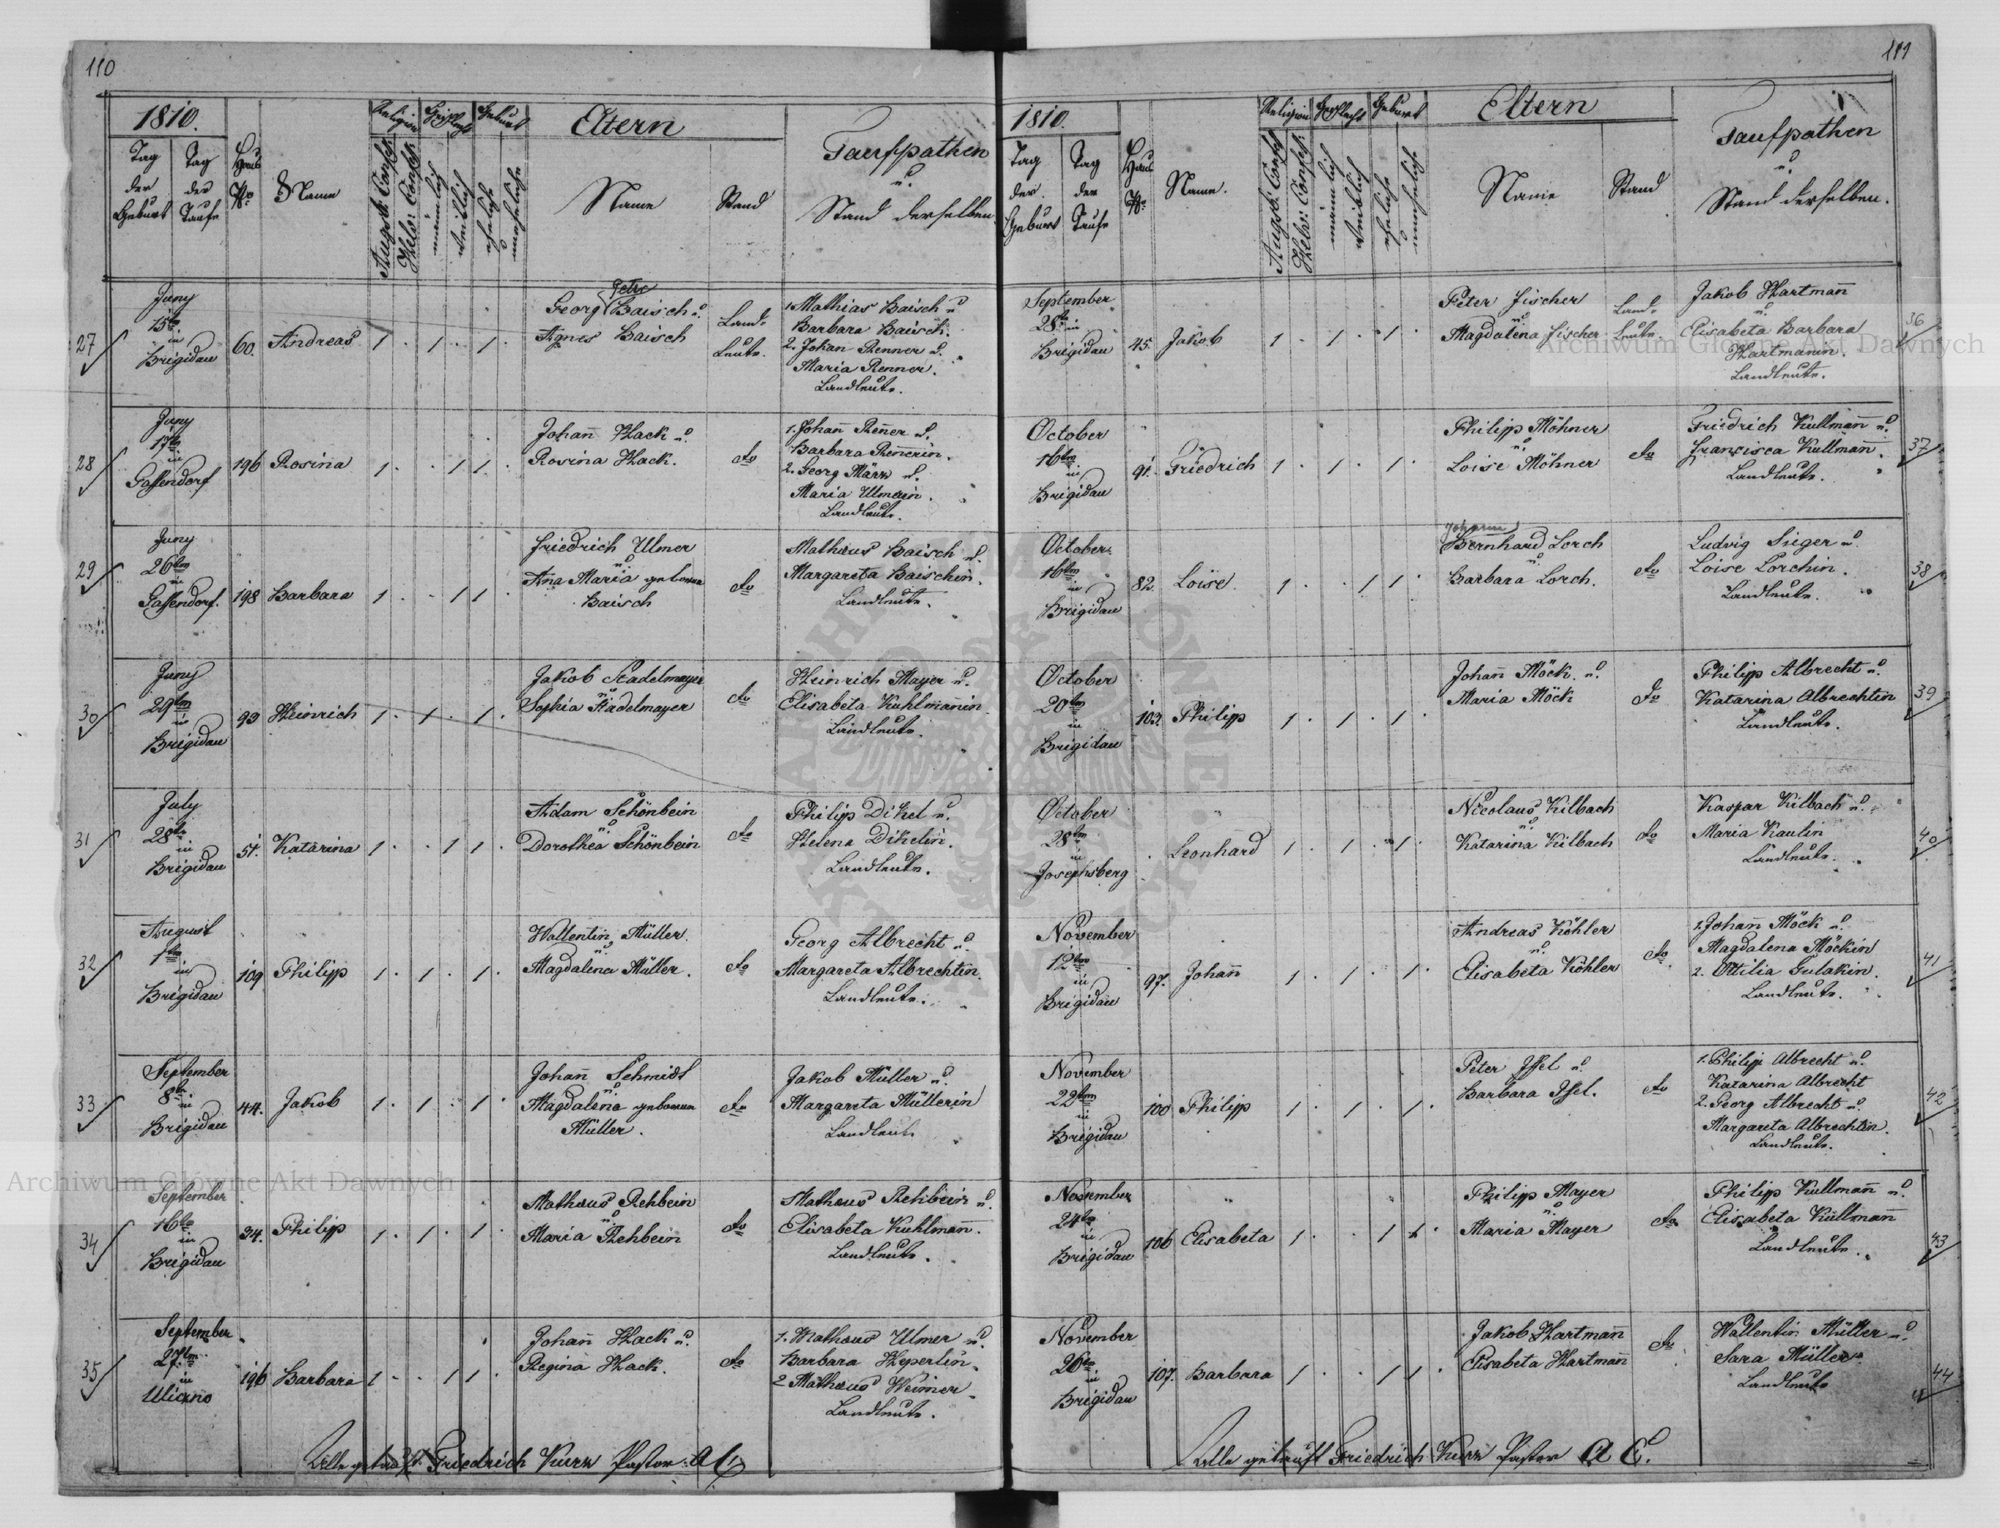 110
1810.
Tag der Geburt
Tag der Taufe
Haus No
Name
Religion
Augsb: Confeß:
Helv: Confeß:
Geschlecht
männlich
weiblich
Geburt
eheliche
uneheliche
Eltern
Name
Stand
Taufpathen
u.
Stand derselben
27
Juny
15tn
in
Brigidau
60.
Andreas
1 . 1 . 1 .
Georg Baisch u.
Agnes Baisch
Land-
Leute.
1. Mathias Baisch u
Barbara Baisch.
2. Johan Renner u.
Maria Renner.
Landleute.
28
Juny
17tn
in
Gassendorf
196
Rosina
1 . . 1 1 .
Johañ Hack u.
Rosina Hack.
do
1. Johañ Reñer u.
Barbara Reñerin.
2. Georg März u.
Maria Ulmerin.
Landleute.
29
Juny
26tn
in
Gassendorf.
198
Barbara
1 . . 1 1 .
Friedrich Ulmer
u.
Ana Maria geborne
Baisch
do
Mathäus Baisch u.
Margareta Baischin.
Landleute.
30
Juny
29tn
in
Brigidau
93
Heinrich
1 . 1 . 1 .
Jakob Stadelmayer
u.
Sophia Stadelmayer
do
Heinrich Mayer u.
Elisabeta Kuhlmañin
Landleute.
31
July
28tn
in
Brigidau
51.
Katarina
1 . . 1 1 .
Adam Schönbein
u.
Dorothea Schönbein
do
Philip Dikel u.
Helena Dikelin.
Landleute.
32
August
1tn
in
Brigidau
109
Philipp
1 . 1 . 1 .
Wallentin Müller.
u.
Magdalena Müller.
do
Georg Albrecht u.
Margareta Albrechtin.
Landleute.
33
September
8tn
in
Brigidau
44.
Jakob
1 . 1 . 1 .
Johañ Schmidt
u.
Magdalena geborne
Müller.
do
Jakob Müller u.
Margareta Müllerin
Landleute
34
September
16tn
in
Brigidau
34.
Philipp
1 . 1 . 1 .
Mathäus Rehbein
u.
Maria Rehbein
do
Mathäus Rehbein u.
Elisabeta Kuhlmañ.
Landleute.
35
September
27tn
in
Uliczno
196
Barbara
1 . . 1 1 .
Johañ Hack u.
Regina Hack.
do
1. Mathäus Ulmer u.
Barbara Heperlin.
2. Mathäus Weimer.
Landleute.
Alle getauft Friedrich Kurz Pastor A C
111
1810.
Tag der Geburt
Tag der Taufe
Haus No
Name.
Religion
Augsb: Confeß:
Helv: Confeß:
Geschlecht
männlich
weiblich
Geburt
eheliche
uneheliche
Eltern
Name
Stand
Taufpathen
u.
Stand derselben.
September
28tn in
Brigidau
45.
Jakob
1 . 1 . 1 .
Peter Fischer
u.
Magdalena Fischer
Land-
Leute.
Jakob Hartmañ
u.
Elisabeta Barbara
Hartmanin.
Landleute.
36
October
16tn
in
Brigidau
91.
Friedrich
1 . 1 . 1 .
Philipp Möhner
u.
Loise Möhner
do
Friedrich Kullmañ u.
Francisca Kullmañ.
Landleute.
37
October
16tn
in
Brigidau
82.
Loise.
1 . . 1 1 .
Johann
Bernhard Lorch
u.
Barbara Lorch.
do
Ludvig Sieger u.
Loise Lorchin.
Landleute.
38
October
20tn
in
Brigidau
103.
Philipp
1 . 1 . 1 .
Johañ Möck. u.
Maria Möck
do
Philipp Albrecht u.
Katarina Albrechtin
Landleute.
39
October
28tn
in
Josephsberg
Leonhard
1 . 1 . 1 .
Nicolaus Kilbach
u.
Katarina Kilbach
do
Kaspar Kilbach u.
Maria Kaulin
Landleute.
40
November
12tn
in
Brigidau
97.
Johañ
1 . 1 . 1 .
Andreas Köhler
u.
Elisabeta Köhler
do
1. Johañ Möck u.
Magdalena Möckin
2. Ottilia Gulakin.
Landleute.
41
November
22tn
in
Brigidau
100
Philipp
1 . 1 . 1 .
Peter Issel u
Barbara Issel.
do
1. Philipp Albrecht u.
Katarina Albrecht
2. Georg Albrecht u.
Margareta Albrechtin.
Landleute.
42
November
24tn
in
Brigidau
106
Elisabeta
1 . . 1 1 .
Philipp Mayer
u.
Maria Mayer
do
Philipp Kullmañ u.
Elisabeta Kullmañ
Landleute.
43
November
26tn
in
Brigidau
107.
Barbara
1 . . 1 1 .
Jakob Hartmañ
Elisabeta Hartmañ
do
Wallentin Müller u.
Sara Müller
Landleute
44
Alle getauft Friedrich Kurz Pastor A C.
Archiwum Główne Akt Dawnych
Archiwum Główne Akt Dawnych